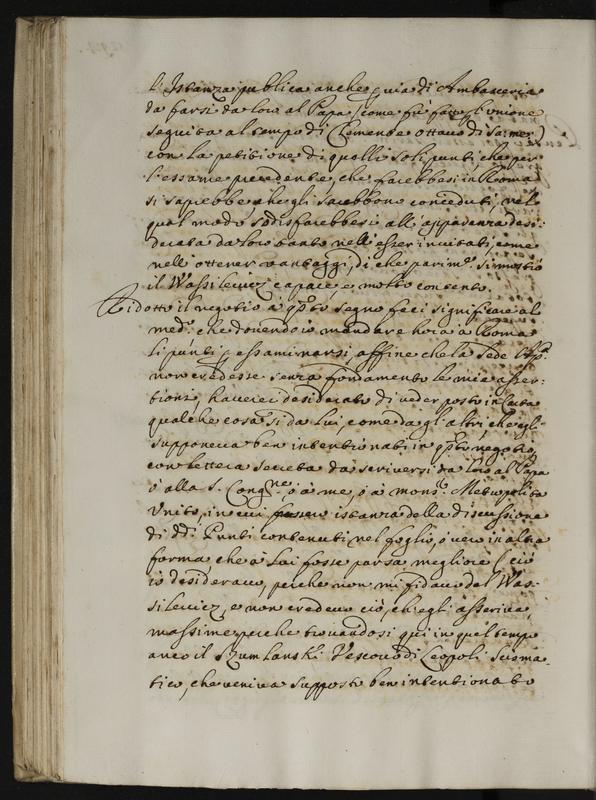 l'Istanza publica anche p via di Ambasceria
da farsi da loro al Papa (come fu fatto p l'unione
seguita al tempo di Clemente ottavo di sa: mem:)
con la petitione di quelli soli punti, che per
l'essame precedente, che farebbesi in Roma
si saprebbe, che gli sarebbono conceduti, nel
qual modo sodisfarebbesi all'apparenza desi-
derata da loro tanto nell'esser invitati, come
nell'ottener vantaggi, di che parim.te si mostrò
il Wassilewicz capace, e molto contento.
Ridotto il negotio à q.sto segno feci significare al
med.o che dovendo io mandare hora a Roma
li punti p essaminarsi, affine che la Sede Ap.ca
non credesse senza fondamento le mie asser-
tioni, haverei desiderato di veder posto in carta
qualche cosa sì da lui come da gl'altri, che egli
supponeva ben intentionati in q.sto negotio,
con lettera secreta da scriversi da loro al Papa
ò alla S. Cong.ne, ò à me, ò à mons.r Metropolita
Unito, in cui istanza della discussione
di d.i Punti contenuti nel foglio, ò vero in altra
forma, che à lui fosse parsa migliore (ciò
io desideravo, perche non mi fidavo del Was-
silewicz, e non credevo ciò, ch'egli asseriva,
massime perche trovandosi qui in quel tempo
anco il Szumlanski Vescovo di Leopoli scisma-
tico, che veniva supposto ben intentionato